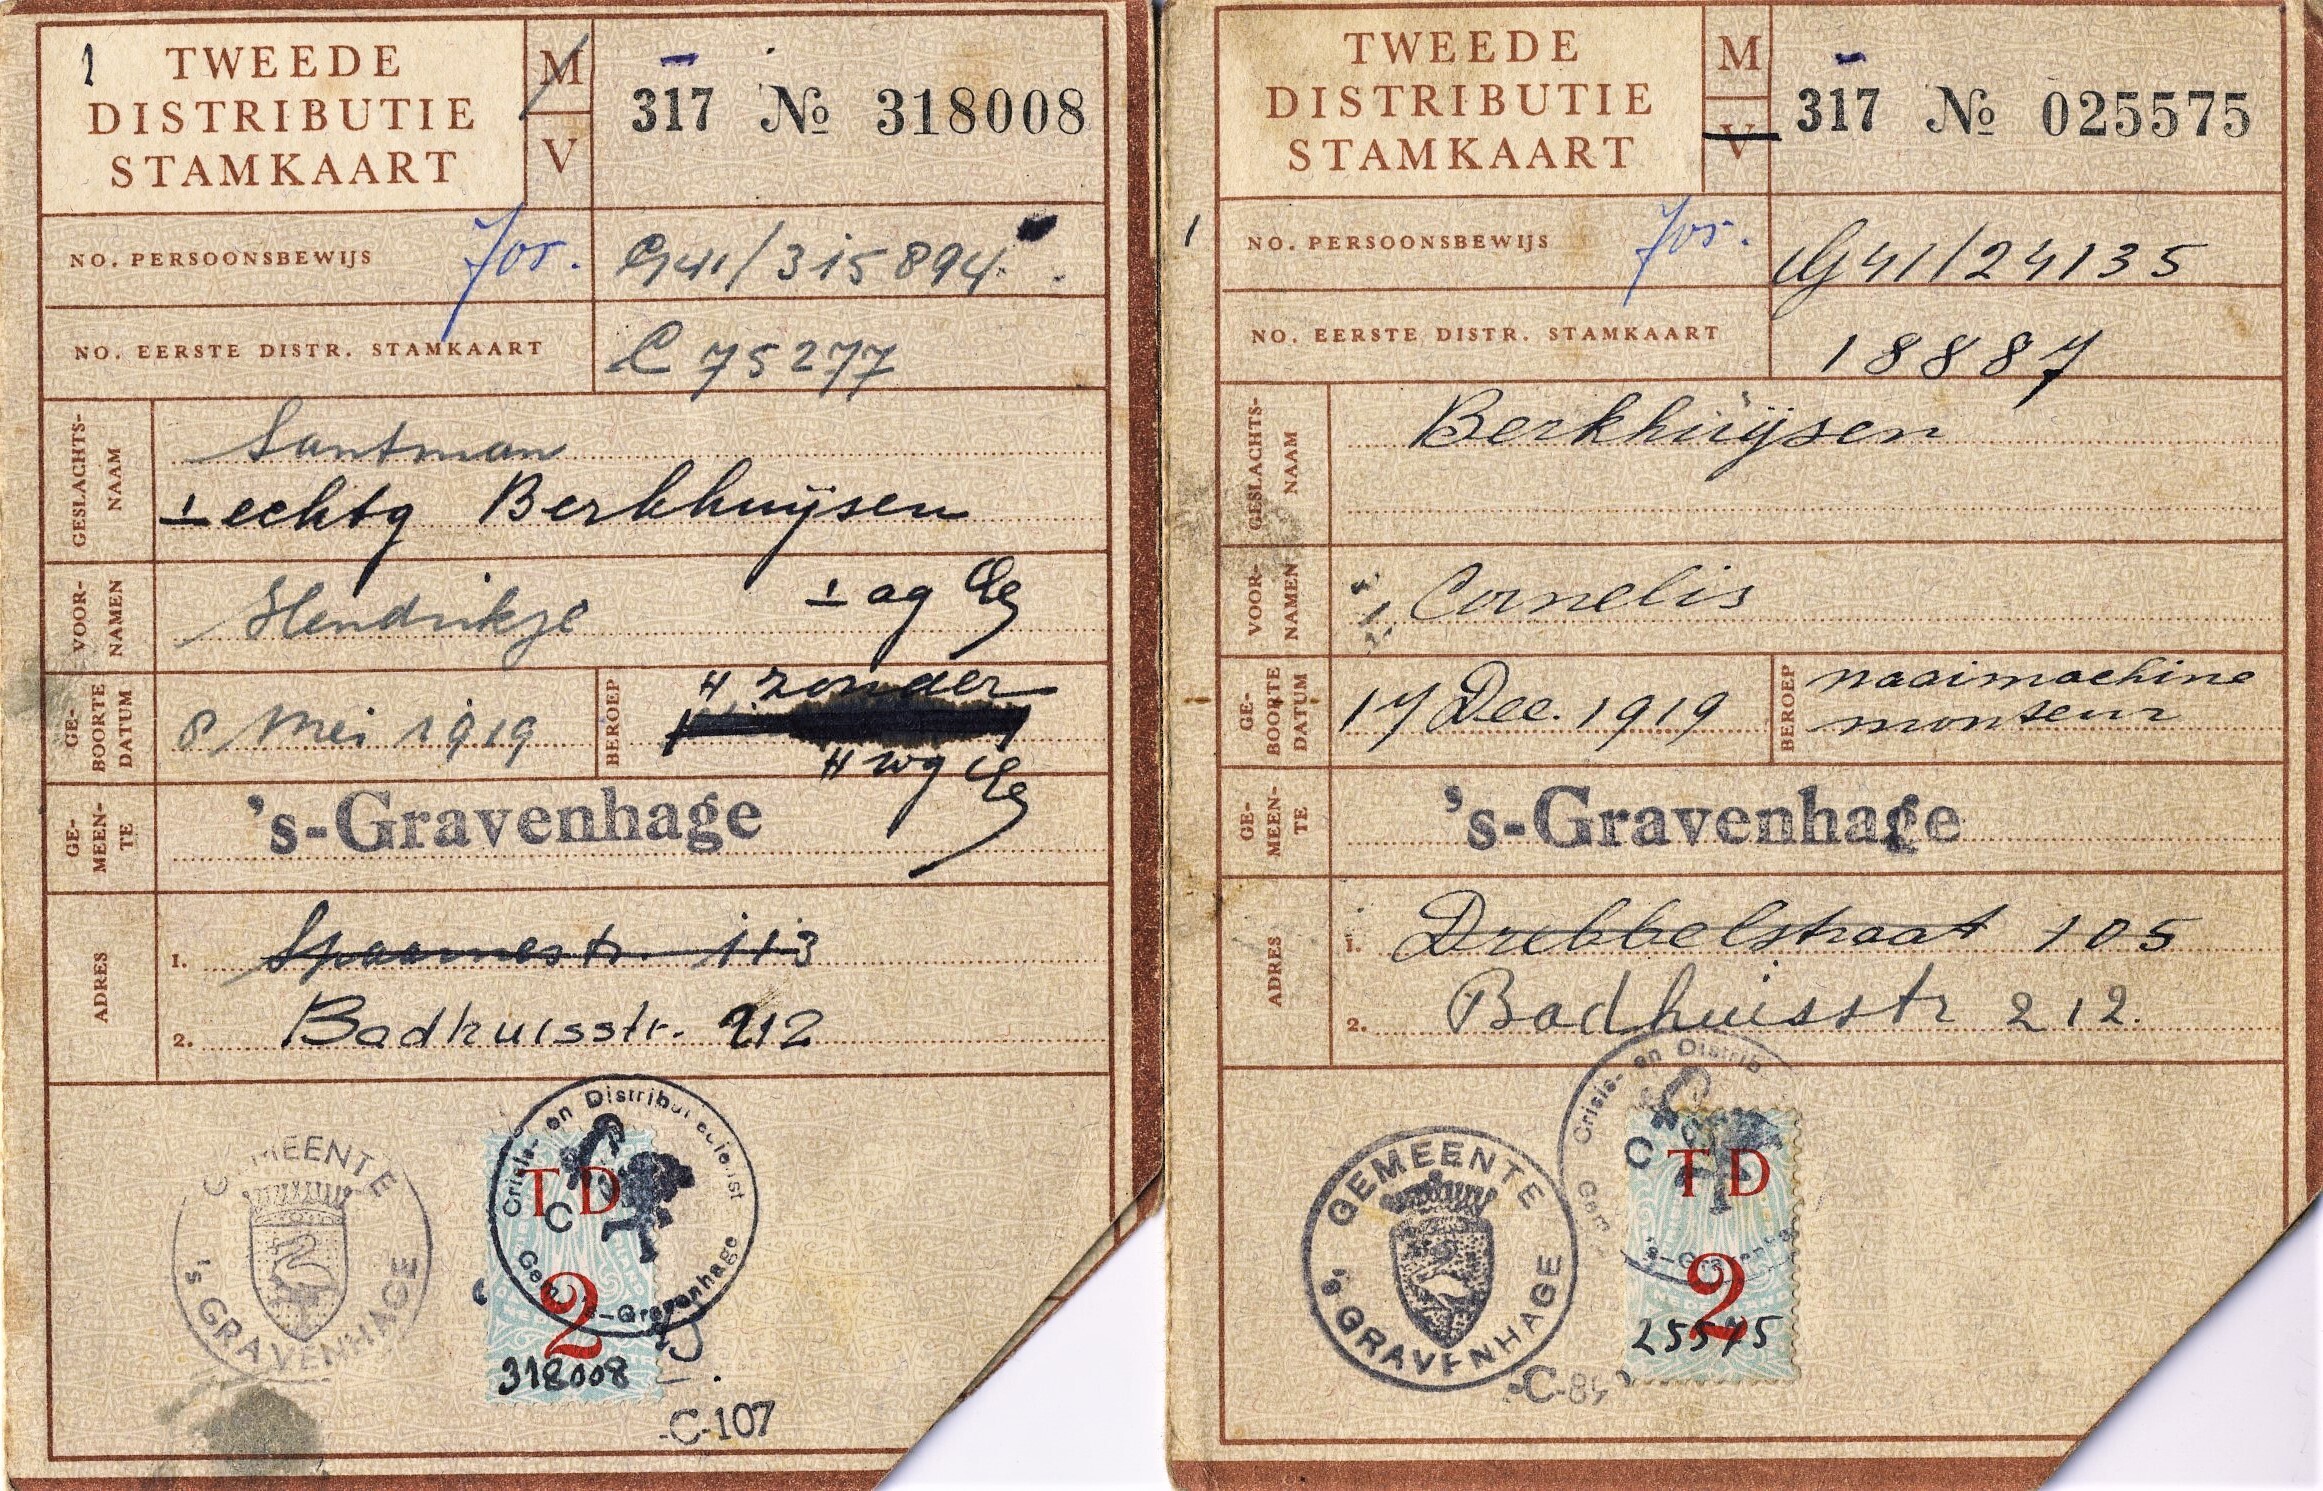 1
TWEEDE
DISTRIBUTIE
STAMKAART
M
V
317 № 318008
NO. PERSOONSBEWIJS
G41/315894
NO. EERSTE DISTR. STAMKAART
C 75277
GESLACHTS-
NAAM
Santman
echtg Berkhuijsen
VOOR-
NAMEN
Hendrikje
GE-
BOORTE
DATUM
8 Mei 1919
BEROEP
zonder
GE-
MEEN-
TE
's-Gravenhage
ADRES
1. Spaarnestr. 113
2. Badhuisstr. 212
GEMEENTE
's GRAVENHAGE
Crisis- en Distributiedienst
Gem. 's-Gravenhage
TD
C
2
318008
-C-107
TWEEDE
DISTRIBUTIE
STAMKAART
M
V
317 № 025575
1
NO. PERSOONSBEWIJS
G41/24135
NO. EERSTE DISTR. STAMKAART
18887
GESLACHTS-
NAAM
Berkhuijsen
VOOR-
NAMEN
Cornelis
GE-
BOORTE
DATUM
17 Dec. 1919
BEROEP
naaimachine
monteur
GE-
MEEN-
TE
's-Gravenhage
ADRES
1. Drebbelstraat 105
2. Badhuisstr 212.
GEMEENTE
's GRAVENHAGE
Crisis- en Distrib
Gem
's-Gravenha
C
TD
2
25575